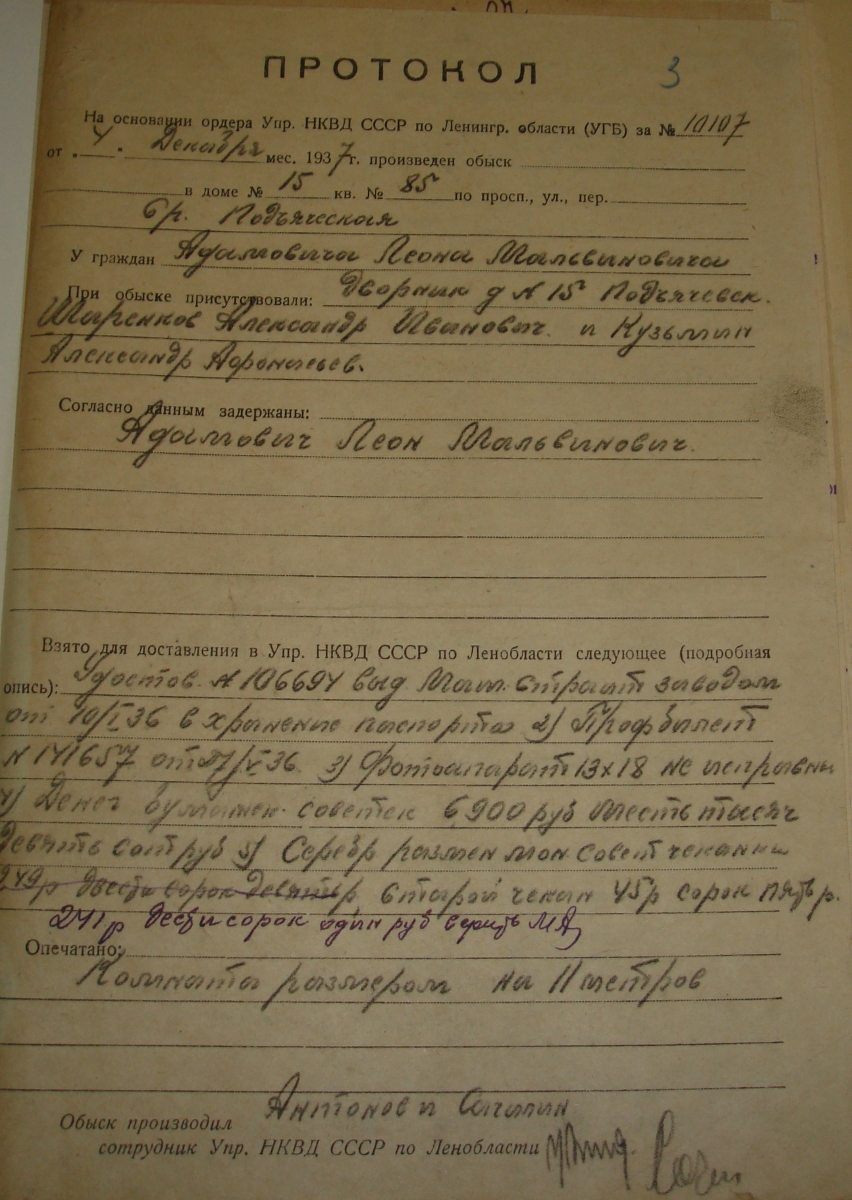 ПРОТОКОЛ 3
На основании ордера Упр. НКВД СССР по Ленингр. области (УГБ) за № 10107
от „4“ Декабря мес. 1937 г. произведен обыск
в доме № 15 кв. № 85 по просп., ул., пер.
Бр. Подъяческая
У граждан Адамовича Леона Мальвиновича
При обыске присутствовали: Дворник д N 15 Подъячевск.
Шаренков Александр Иванович и Кузьмин
Александр Афонасьев.
Согласно данным задержаны:
Адамович Леон Мальвинович
Взято для доставления в Упр. НКВД СССР по Ленобласти следующее (подробная
опись): Удостов. N 106694 выд Маш. строит заводом
от 10/I 36 в хранение паспорта 2) Профбилет
N 141657 от 27/V 36. 3) Фотоапарат 13х18 не исправны
4) Денег бумажн. советск 6900 руб Шесть тысяч
Девять сот руб 5) Серебр размен мон. совет чеканки
249р двести сорок девять р Старой чекан 45р сорок пять р.
241р двести сорок один руб верить
Опечатано:
Комната размером на 11 метров
Антонов и
Обыск производил
сотрудник Упр. НКВД СССР по Ленобласти